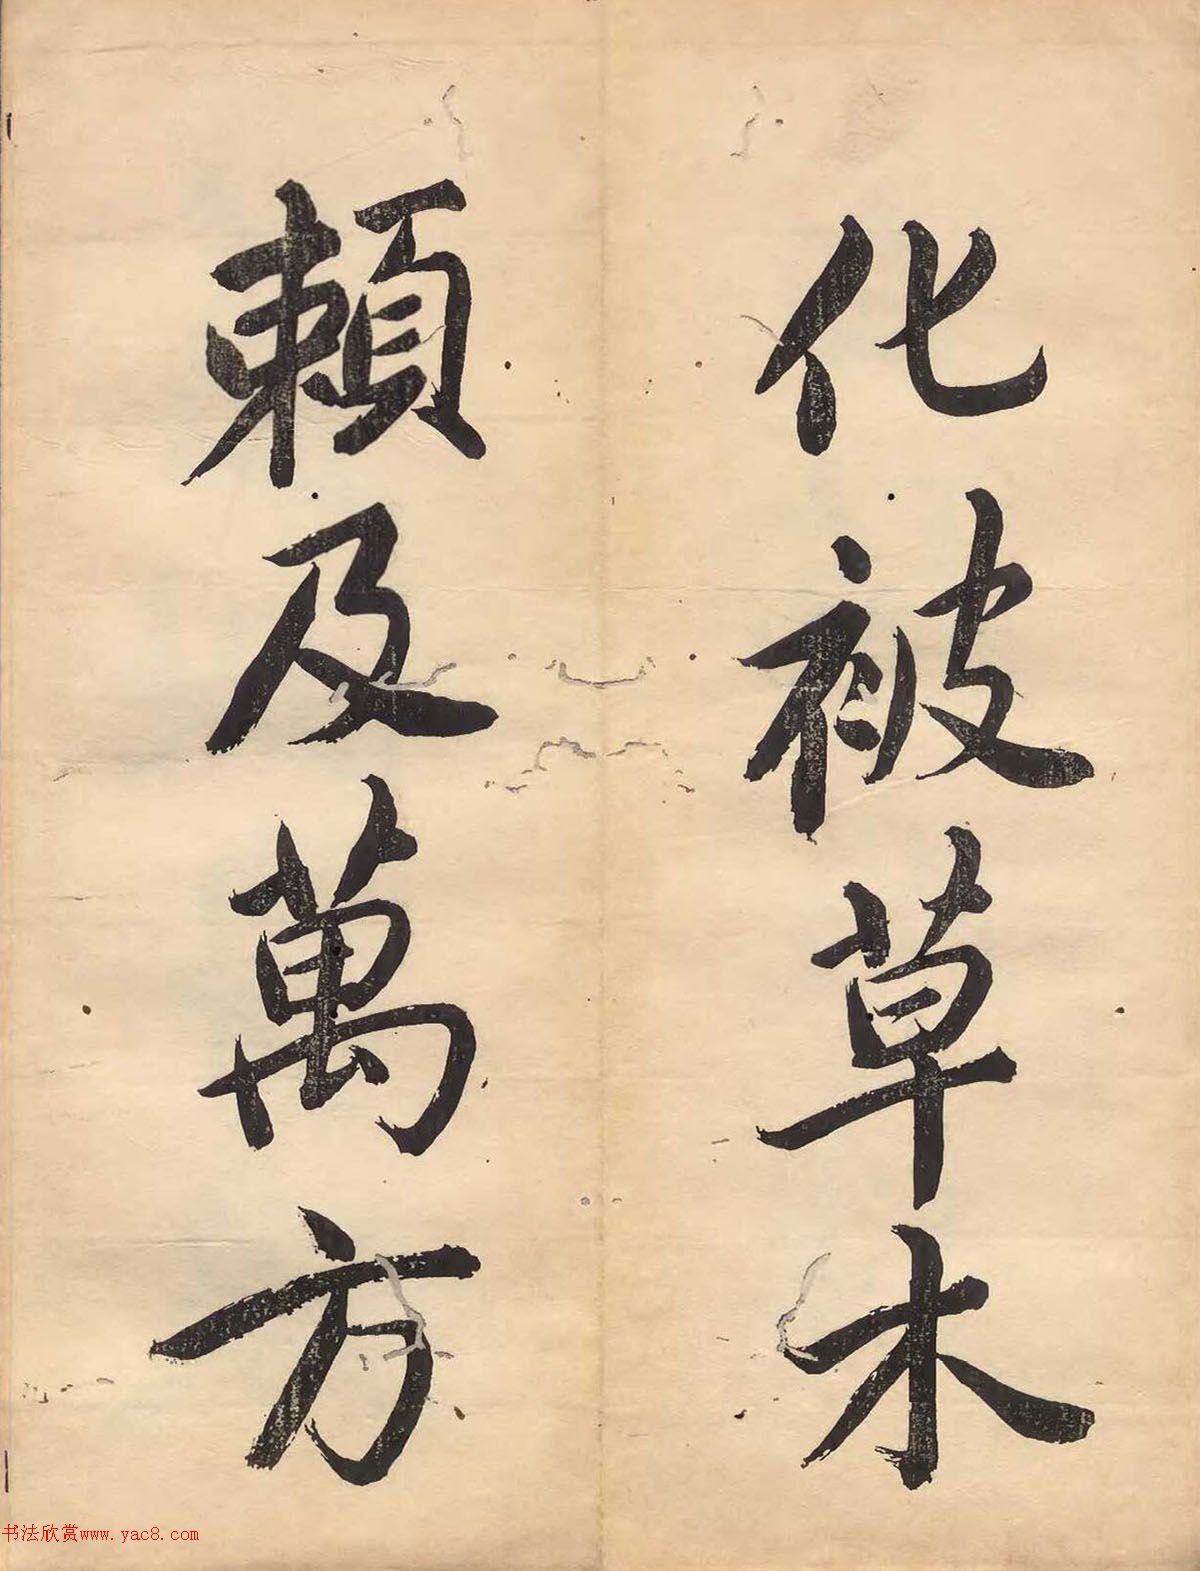 化被草木
賴及萬方
书法欣赏www.yac8.com